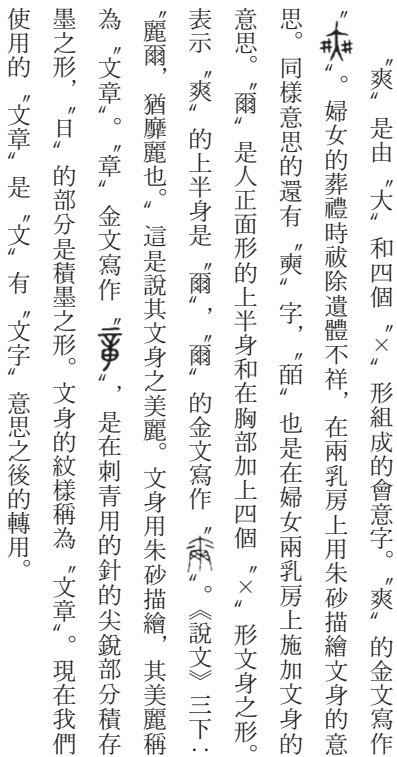 〝爽〞是由〝大〞和四個〝×〞形組成的會意字。〝爽〞的金文寫作
〝〞。婦女的葬禮時祓除遺體不祥，在兩乳房上用朱砂描繪文身的意
思。同樣意思的還有〝奭〞字，〝皕〞也是在婦女兩乳房上施加文身的
意思。〝爾〞是人正面形的上半身和在胸部加上四個〝×〞形文身之形。
表示〝爽〞的上半身是〝爾〞，〝爾〞的金文寫作〝〞。《說文》三下：
〝麗爾，猶靡麗也。〞這是說其文身之美麗。文身用朱砂描繪，其美麗稱
為〝文章〞。〝章〞金文寫作〝〞，是在刺青用的針的尖銳部分積存
墨之形，〝日〞的部分是積墨之形。文身的紋樣稱為〝文章〞。現在我們
使用的〝文章〞是〝文〞有〝文字〞意思之後的轉用。